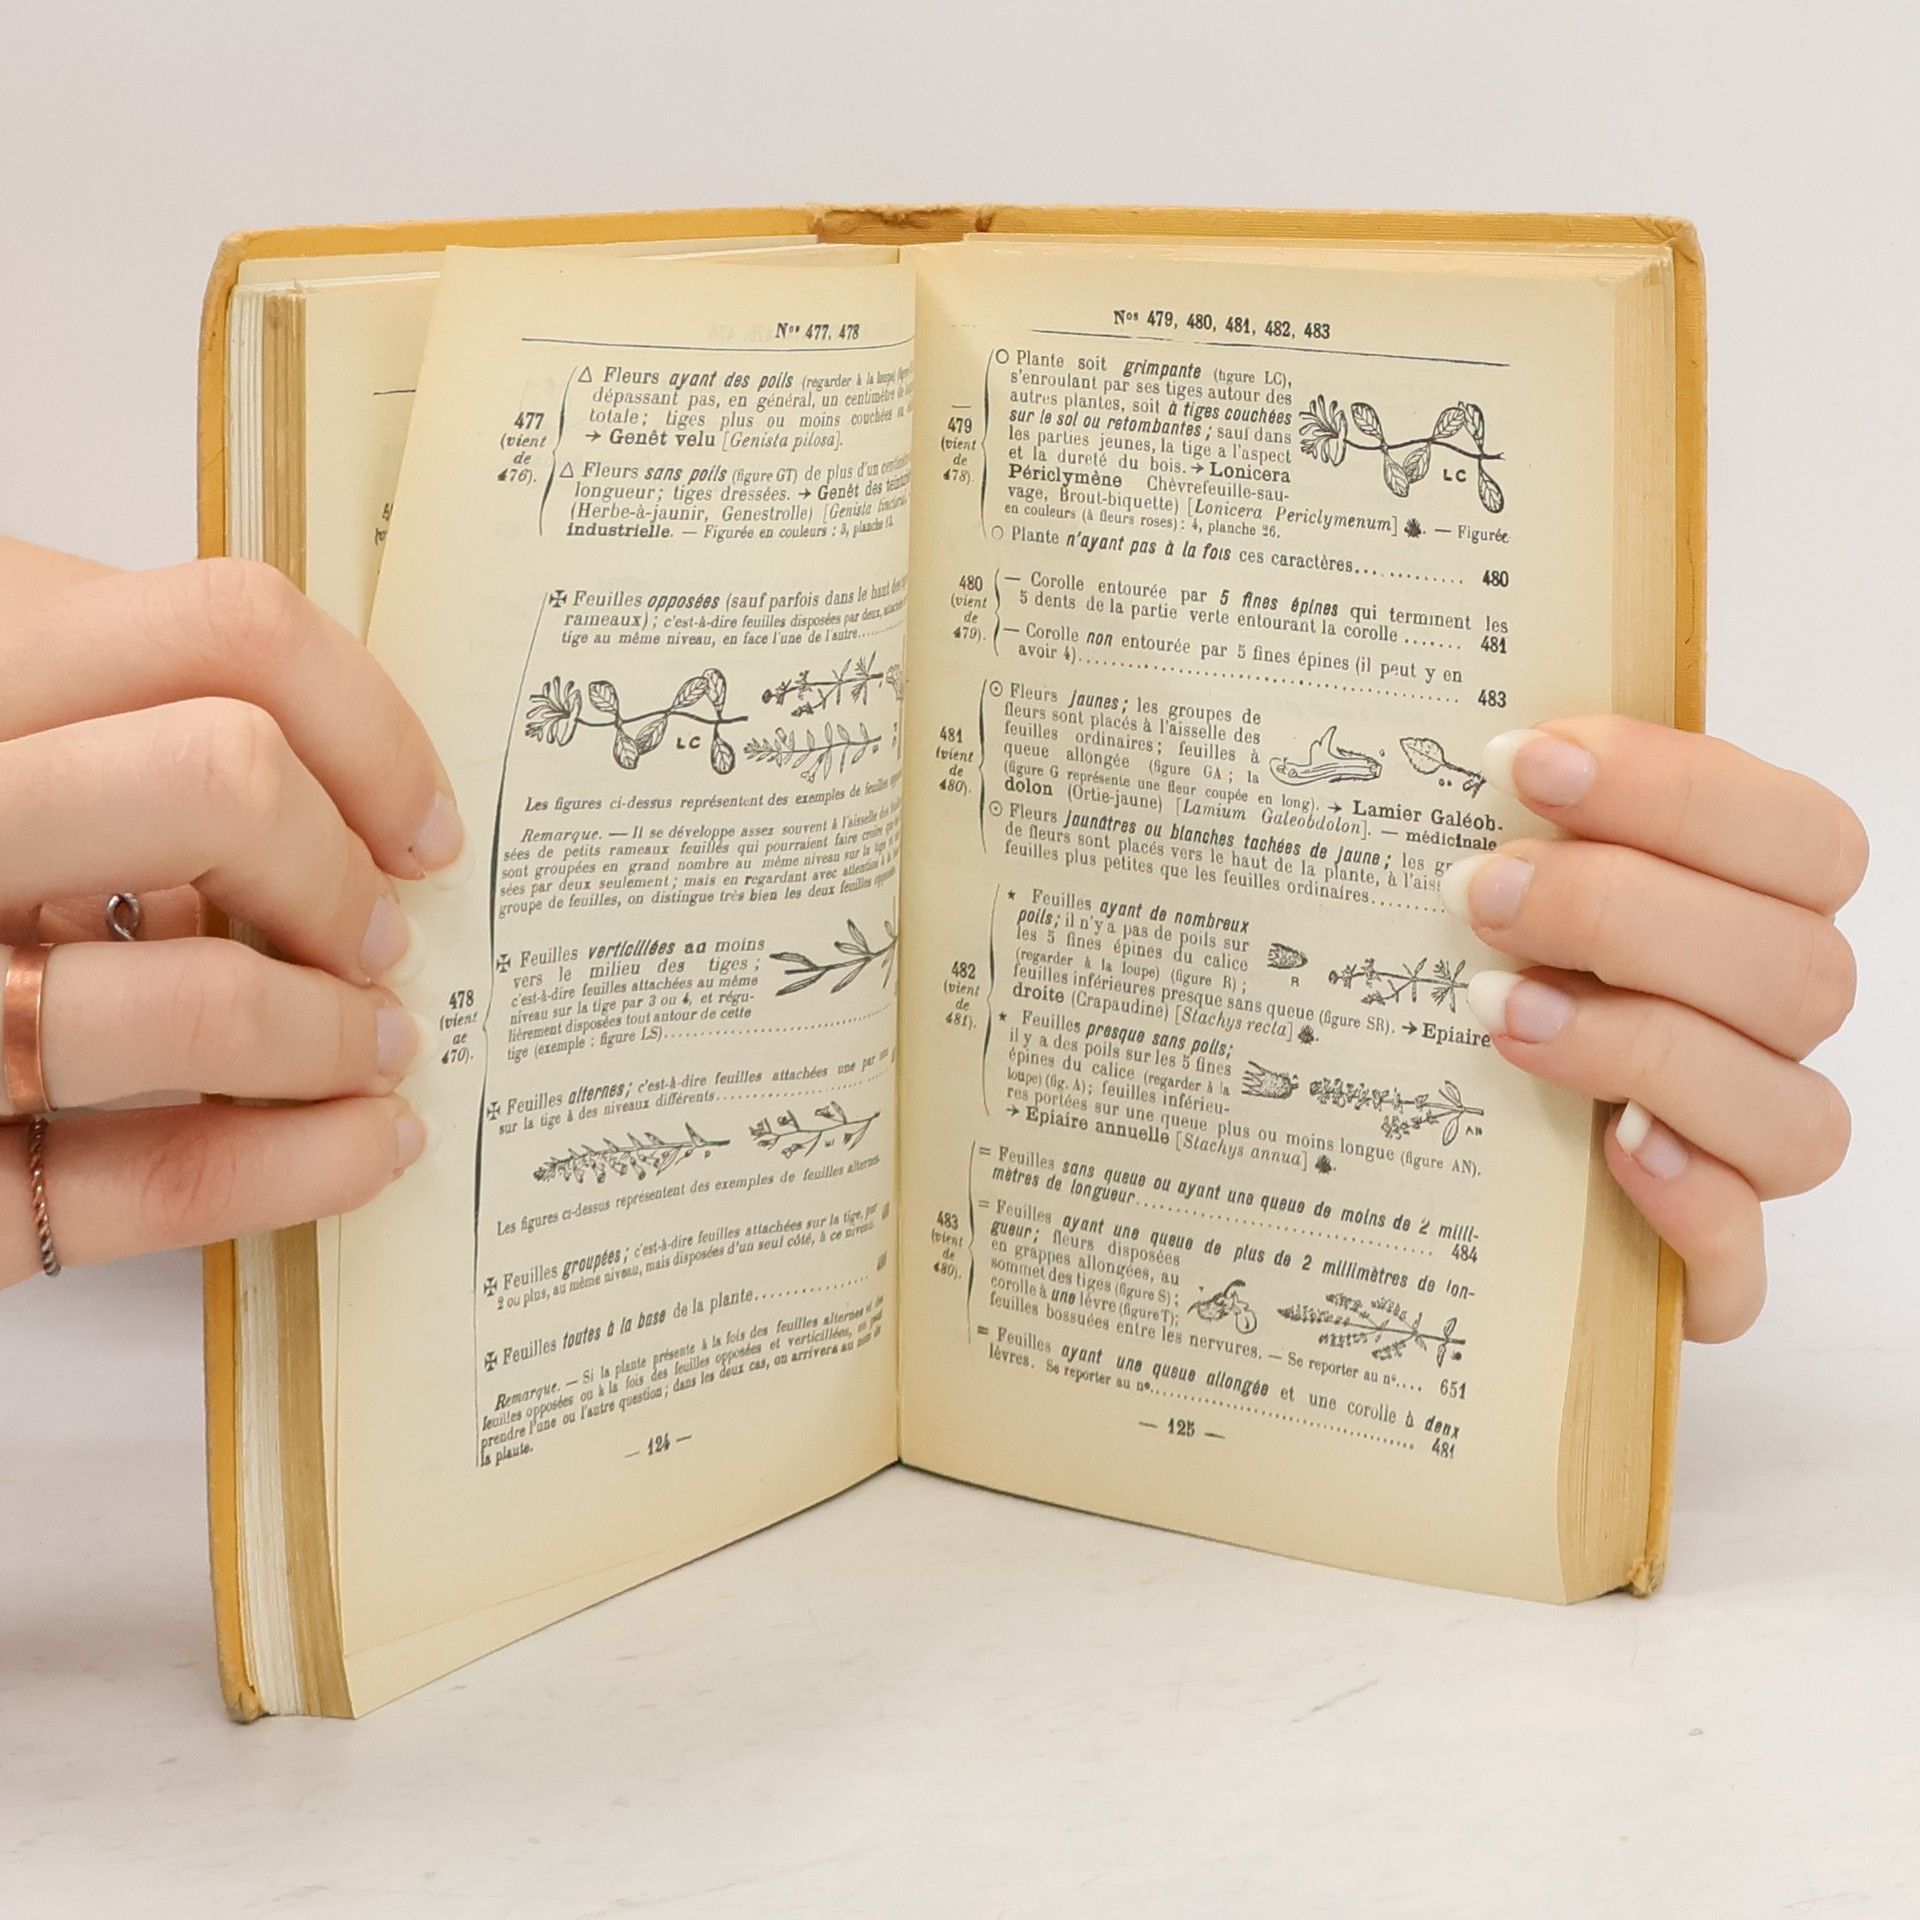 Nos 477, 478
△ Fleurs ayant des poils (regarder à la loupe)
dépassant pas, en général, un centimètre de
totale; tiges plus ou moins couchées
→ Genêt velu [Genista pilosa].
477
(vient
de
476).
△ Fleurs sans poils (figure GT) de plus d'un
longueur; tiges dressées. → Genêt des
(Herbe-à-jaunir, Genestrolle) [Genista
industrielle. — Figurée en couleurs : 3, planche 12.
✠ Feuilles opposées (sauf parfois dans le haut des
rameaux); c'est-à-dire feuilles disposées par deux,
tige au même niveau, en face l'une de l'autre........
LC
Les figures ci-dessus représentent des exemples de feuilles
Remarque. — Il se développe assez souvent à l'aisselle des
sées de petits rameaux feuillés qui pourraient faire croire que
sont groupées en grand nombre au même niveau sur la tige
sées par deux seulement; mais en regardant avec attention à la
groupe de feuilles, on distingue très bien les deux feuilles
✠ Feuilles verticillées au moins
vers le milieu des tiges;
c'est-à-dire feuilles attachées au même
niveau sur la tige par 3 ou 4, et régu-
lièrement disposées tout autour de cette
tige (exemple : figure LS)........
478
(vient
de
470).
✠ Feuilles alternes; c'est-à-dire feuilles attachées une par
sur la tige à des niveaux différents........
Les figures ci-dessus représentent des exemples de feuilles alternes.
✠ Feuilles groupées; c'est-à-dire feuilles attachées sur la tige, par
2 ou plus, au même niveau, mais disposées d'un seul côté, à ce niveau.
✠ Feuilles toutes à la base de la plante........
Remarque. — Si la plante présente à la fois des feuilles alternes et des
feuilles opposées ou à la fois des feuilles opposées et verticillées, on peut
prendre l'une ou l'autre question; dans les deux cas, on arrivera au nom de
la plante.
— 124 —
Nos 479, 480, 481, 482, 483
○ Plante soit grimpante (figure LC),
s'enroulant par ses tiges autour des
autres plantes, soit à tiges couchées
sur le sol ou retombantes; sauf dans
les parties jeunes, la tige a l'aspect
et la dureté du bois. → Lonicera
Périclymène Chèvrefeuille-sau-
vage, Brout-biquette) [Lonicera Periclymenum] . — Figurée
en couleurs (à fleurs roses) : 4, planche 26.
LC
479
(vient
de
478).
○ Plante n'ayant pas à la fois ces caractères.............. 480
480
(vient
de
479).
— Corolle entourée par 5 fines épines qui terminent les
5 dents de la partie verte entourant la corolle ....... 481
— Corolle non entourée par 5 fines épines (il peut y en
avoir 4)........ 483
481
(vient
de
480).
⊙ Fleurs jaunes; les groupes de
fleurs sont placés à l'aisselle des
feuilles ordinaires; feuilles à
queue allongée (figure GA; la
(figure G représente une fleur coupée en long). → Lamier Galéob-
dolon (Ortie-jaune) [Lamium Galeobdolon]. — médicinale
⊙ Fleurs jaunâtres ou blanches tachées de jaune; les
de fleurs sont placés vers le haut de la plante, à
feuilles plus petites que les feuilles ordinaires........
482
(vient
de
481).
* Feuilles ayant de nombreux
poils; il n'y a pas de poils sur
les 5 fines épines du calice
(regarder à la loupe) (figure R);
feuilles inférieures presque sans queue (figure SR). → Epiaire
droite (Crapaudine) [Stachys recta] .
R
* Feuilles presque sans poils;
il y a des poils sur les 5 fines
épines du calice (regarder à la
loupe) (fig. A); feuilles inférieu-
res portées sur une queue plus ou moins longue (figure AN).
→ Epiaire annuelle [Stachys annua] .
AN
483
(vient
de
480).
= Feuilles sans queue ou ayant une queue de moins de 2 milli-
mètres de longueur........ 484
= Feuilles ayant une queue de plus de 2 millimètres de lon-
gueur; fleurs disposées
en grappes allongées, au
sommet des tiges (figure S);
corolle à une lèvre (figure T);
feuilles bossuées entre les nervures. — Se reporter au n°.... 651
= Feuilles ayant une queue allongée et une corolle à deux
lèvres. Se reporter au n°........ 481
— 125 —